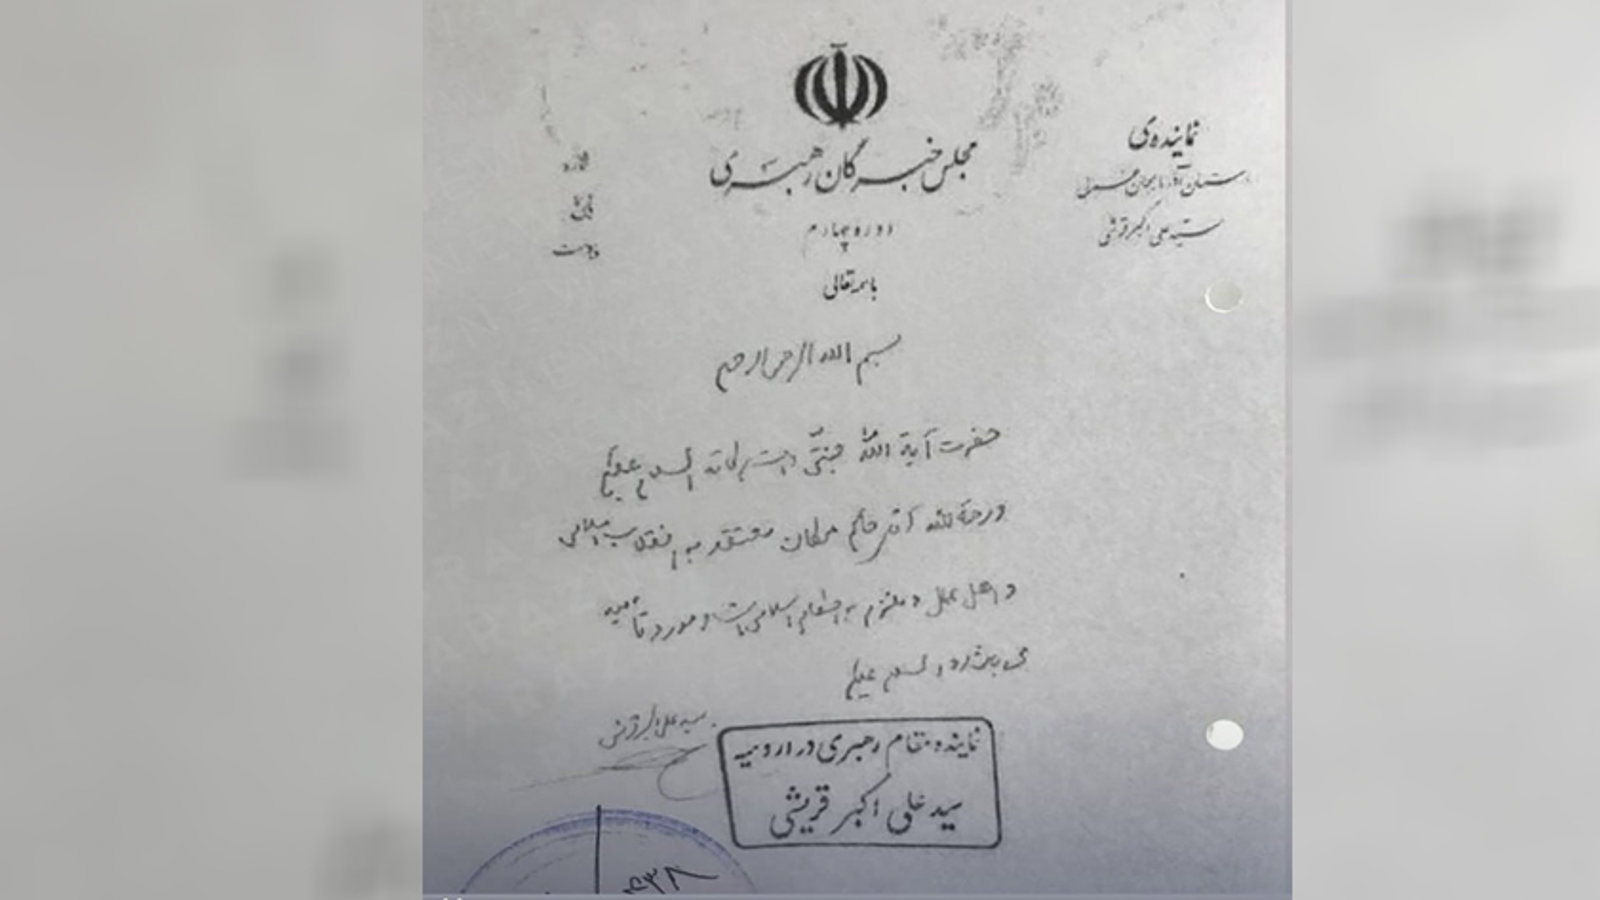 مجلس خبرگان رهبری
دوره چهارم
باسمه تعالی
نماینده‌ی
استان آذربایجان غربی
سید علی اکبر قرشی
شماره
تاریخ
پیوست
بسم الله الرحمن الرحیم
حضرت آیة الله جنتی دامت برکاته السلام علیکم
ورحمة الله آقای حاتم معتقد به انقلاب اسلامی
و اهل عمل و ملتزم به احکام اسلامی است و مورد تأیید
می باشد والسلام علیکم
سید علی اکبر قرشی
نماینده مقام رهبری در ارومیه
سید علی اکبر قریشی